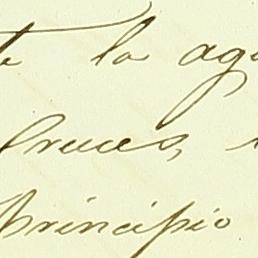 la ag
Cruces,
Principio